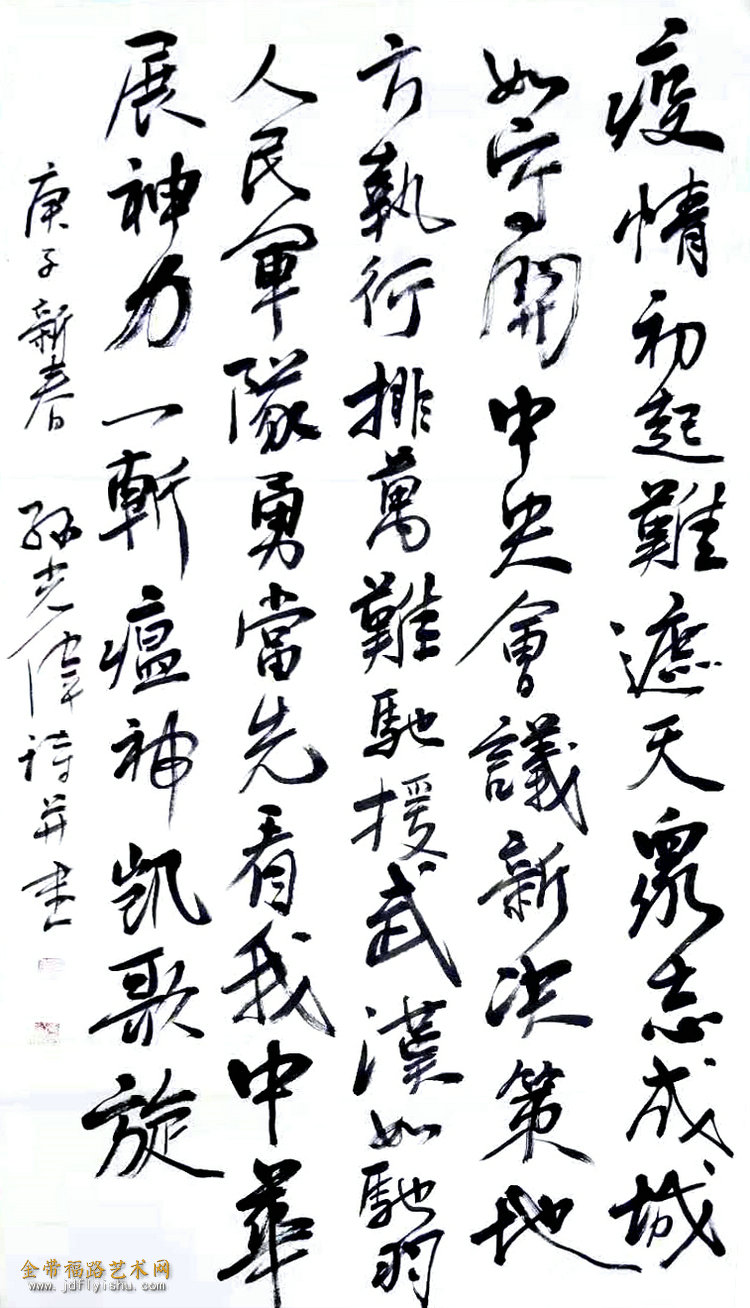 疫情初起難遮天衆志成城
如守開中央會議新決策地
方執行排萬難馳援武漢如馳羽
人民軍隊勇當先看我中華
展神力一斬瘟神凱歌旋
庚子新春 孫光偉詩并書
金带福路艺术网
www.jdflyishu.com